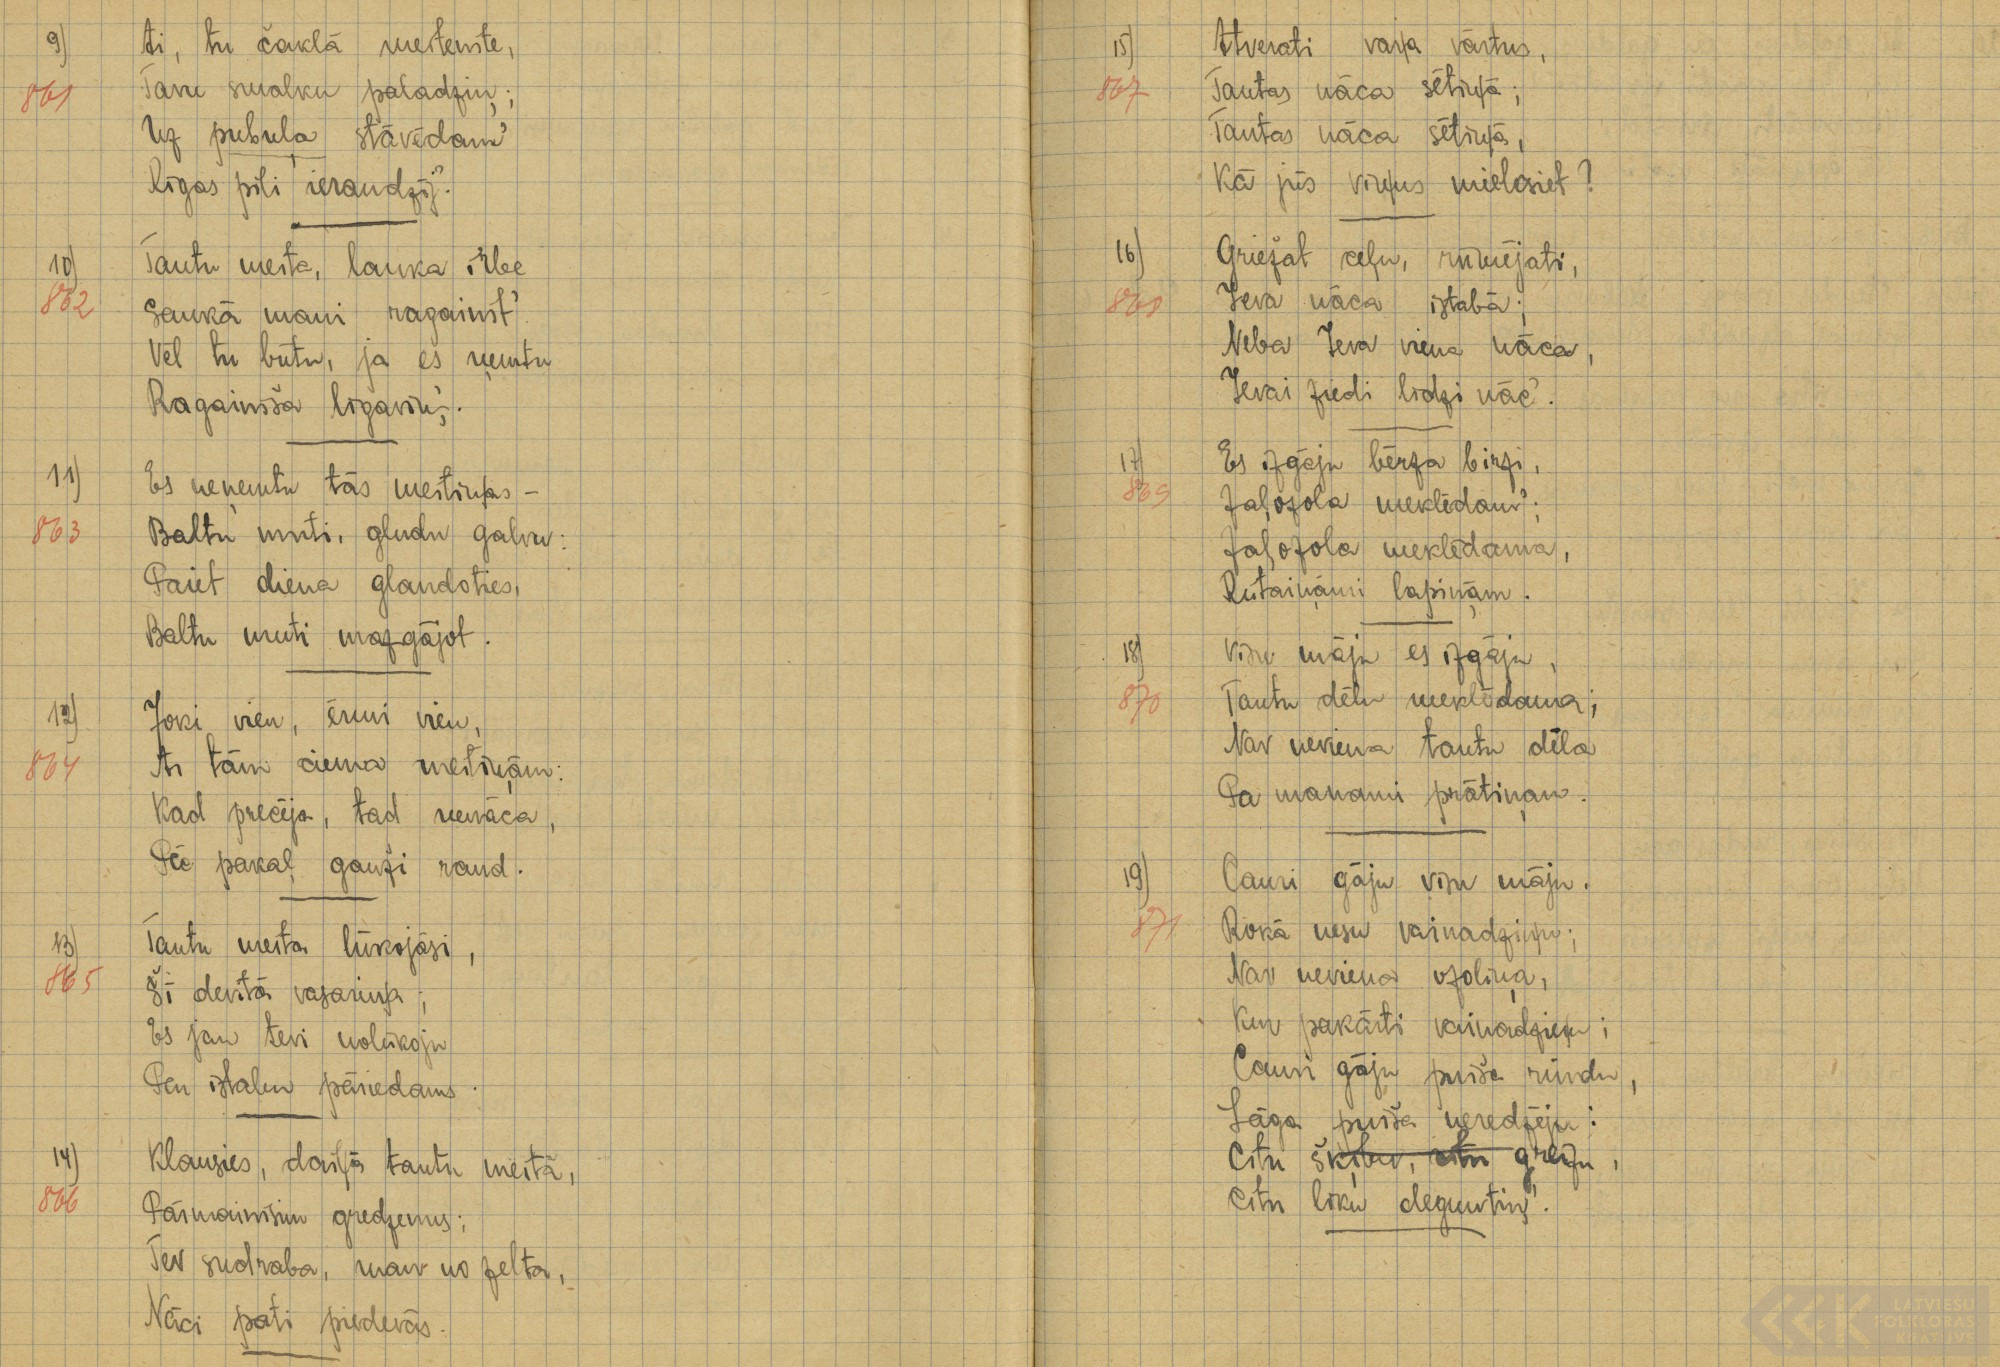 9)
861
Ai, tu čaklā meitenīte,
Tavu smalku paladziņ;
Uz puķuļa stāvēdam'
Rīgas pili ieraudzīj'.
10)
862
Tautu meita, lauka irbe
Saukā mani ragainīt'
Vēl tu būtu, ja es ņemtu
Ragainīša līgaviņ'.
11)
863
Es neņemtu tās meitiņas –
Baltu muti, gludu galvu:
Paiet diena glaudoties,
Baltu muti mazgājot.
12)
864
Joki vien, ērmi vien,
Ar tām ciema meitiņām:
Kad precēja, tad nenāca,
Pēc pakaļ gauži raud.
13)
865
Tautu meita lūkojāsi,
Šī devītā vasariņa;
Es jau tevi nolūkoju
Par istabu pāriedams.
14)
866
Klausies, daiļā tautu meitā,
Pārmainīsim gredzenus;
Tev sudraba, man no zelta,
Nāci pati piedevās.
15)
867
Atverati vaŗa vārtus,
Tautas nāca sētiņā;
Tautas nāca sētiņā,
Kā jūs viņus mielosiet?
16)
868
Griežat ceļu, rūmējati,
Ieva nāca istabā;
Neba Ieva viena nāca,
Ievai ziedi līdzi nāc'.
17)
869
Es izgāju bērza birzi,
Zaļozola meklēdam';
Zaļozola meklēdama,
Rūtaiņāmi lapiņām.
18)
870
Visu māju es izgāju,
Tautu dēlu meklēdama;
Nav neviena tautu dēla
Pa manami prātiņam.
19)
871
Cauri gāju visu māju.
Rokā nesu vainadziņu;
Nav neviena ozoliņa,
Kur pakārti vainadziņu;
Cauri gāju puiša rindu,
Lāga puiša neredzēju:
Citu šķību, citu greizu,
Citu līku deguntiņ'.
LATVIEŠU
FOLKLORAS
KRĀTUVE